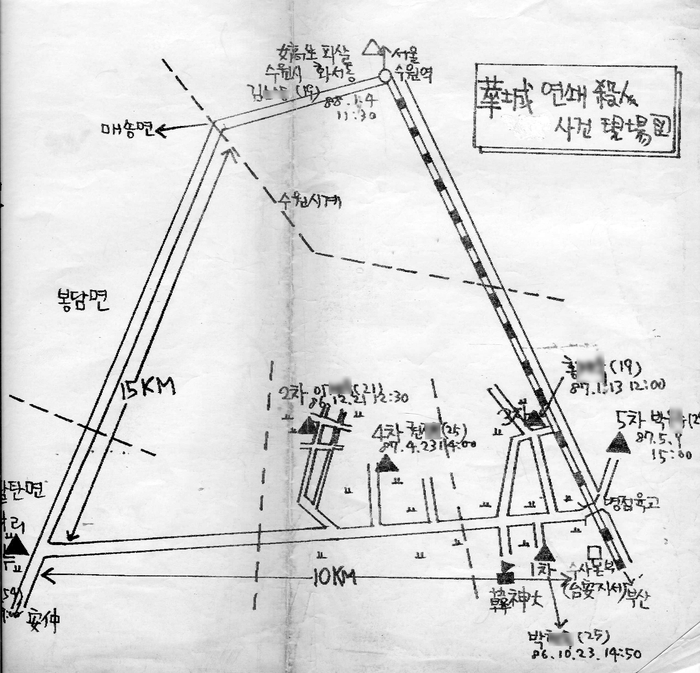 華城 연쇄 殺人
사건 現場図
女高生 피살
수원시 화서동
김 (19)
88.1.4
11:30
서울
수원역
매송면
수원시계
봉담면
15KM
2차
(21)
86.12.21 12:30
4차
(25)
87.4.23 14:00
3차
(19)
87.1.13 12:00
5차 박
87.5.9
15:00
병점육교
탄면
리
安仲
10KM
韓神大
1차
수사본부
(台安지서)
부산
박 (25)
86.10.23.14:50